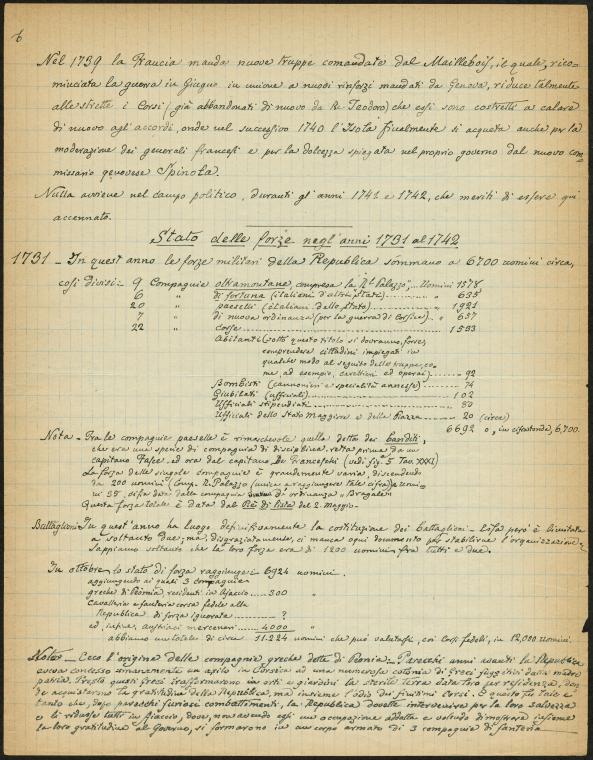 6
Nel 1739 la Francia manda nuove truppe comandate dal Maillebois, il quale, rico-
minciata la guerra in Giugno in unione a nuovi rinforzi mandati da Genova, riduce talmente
alle strette i Corsi (già abbandonati di nuovo da Re Teodoro) che essi sono costretti a calare
di nuovo agl'accordi, onde nel successivo 1740 l'Isola finalmente si acqueta anche per la
moderazione dei generali francesi e per la dolcezza spiegata nel proprio governo dal nuovo com
missario genovese Spinola.
Nulla avviene nel campo politico, durante gl'anni 1741 e 1742, che meriti di essere qui
accennato.
Stato delle forze negl'anni 1731 al 1742
1731 - In quest'anno le forze militari della Repubblica sommano a 6700 uomini circa,
così divisi: - 9 Compagnie oltramontane, compresa la Rl. Palazzo, Uomini 1578
6 " di fortuna (italiani d'altri stati) " 635
20 " paeselli (italiani dello stato) " 1921
7 " di nuova ordinanza (per la guerra di Corsica) " 657
22 " corse 1533
Abitanti (sotto questo titolo si dovranno, forse,
comprendere cittadini impiegati in
qualche modo al seguito delle truppe, co-
me, ad esempio, carettieri ed operai) " 92
Bombisti (cannonieri e specialità annesse) " 74
Giubilati (ufficiali) " 102
Ufficiali stipendiati " 80
Ufficiali dello Stato Maggiore e della Piazza " 20 (circa)
6692 o, in cifra tonda, 6,700.
Nota - Fra le compagnie paeselle è rimarchevole quella detta dei banditi,
che era una specie di compagnia di disciplina retta prima da un
capitano ed ora dal capitano De Franceschi (vedi fig. 5 Tav. XXXI)
La forza delle singole compagnie è grandemente varia, discendendo
da 200 uomini (Comp. Rl. Palazzo (unica a raggiungere tale cifra) a uomi-
ni 35, cifra data dalla compagnia d'ordinanza "Bregalla"
Questa forza totale è data dal Piè di lista del 2 Maggio -
Battaglioni - In quest'anno ha luogo definitivamente la costituzione dei battaglioni - Essa però è limitata
a soltanto due; ma, disgraziatamente, ci manca ogni documento per stabilirne l'organizzazione:
sappiamo soltanto che la loro forza era di 1200 uomini fra tutti e due.
In ottobre lo stato di forza raggiunge: 6924 uomini.
aggiungendo ai quali 3 compagnie
greche di Peonia, residenti in Ajaccio 300 "
Cavalleria e fanteria corsa fedele alla
Repubblica di forza ignorata ?
ed, infine, austriaci mercenari 4000 "
abbiamo un totale di circa 11.224 uomini che può valutarsi, coi Corsi fedeli, in 12,000 uomini.
Nota - Ecco l'origine delle compagnie greche dette di Peonia: - Parecchi anni avanti la Repubblica
aveva concesso umanamente un asilo in Corsica ad una numerosa colonia di Greci fuggitivi dalla madre
patria. Presto questi greci trasformarono in orti e giardini la sterile terra data loro per residenza, don
de acquistarono la gratitudine della Repubblica, ma insieme l'odio de' finitimi corsi. E questo fu tale e
tanto che, dopo parecchi furiosi combattimenti, la Repubblica dovette intervenire per la loro salvezza
e li ridusse tutti in Ajaccio, dove, non avendo essi un'occupazione adatta e volendo dimostrare insieme
la loro gratitudine al Governo, si formarono in un corpo armato di 3 compagnie di fanteria.